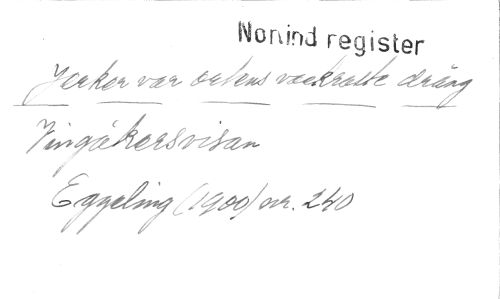 Nonind register
Jerker var ortens vackraste dräng
Vingåkersvisan
Eggeling (1900) nr. 240